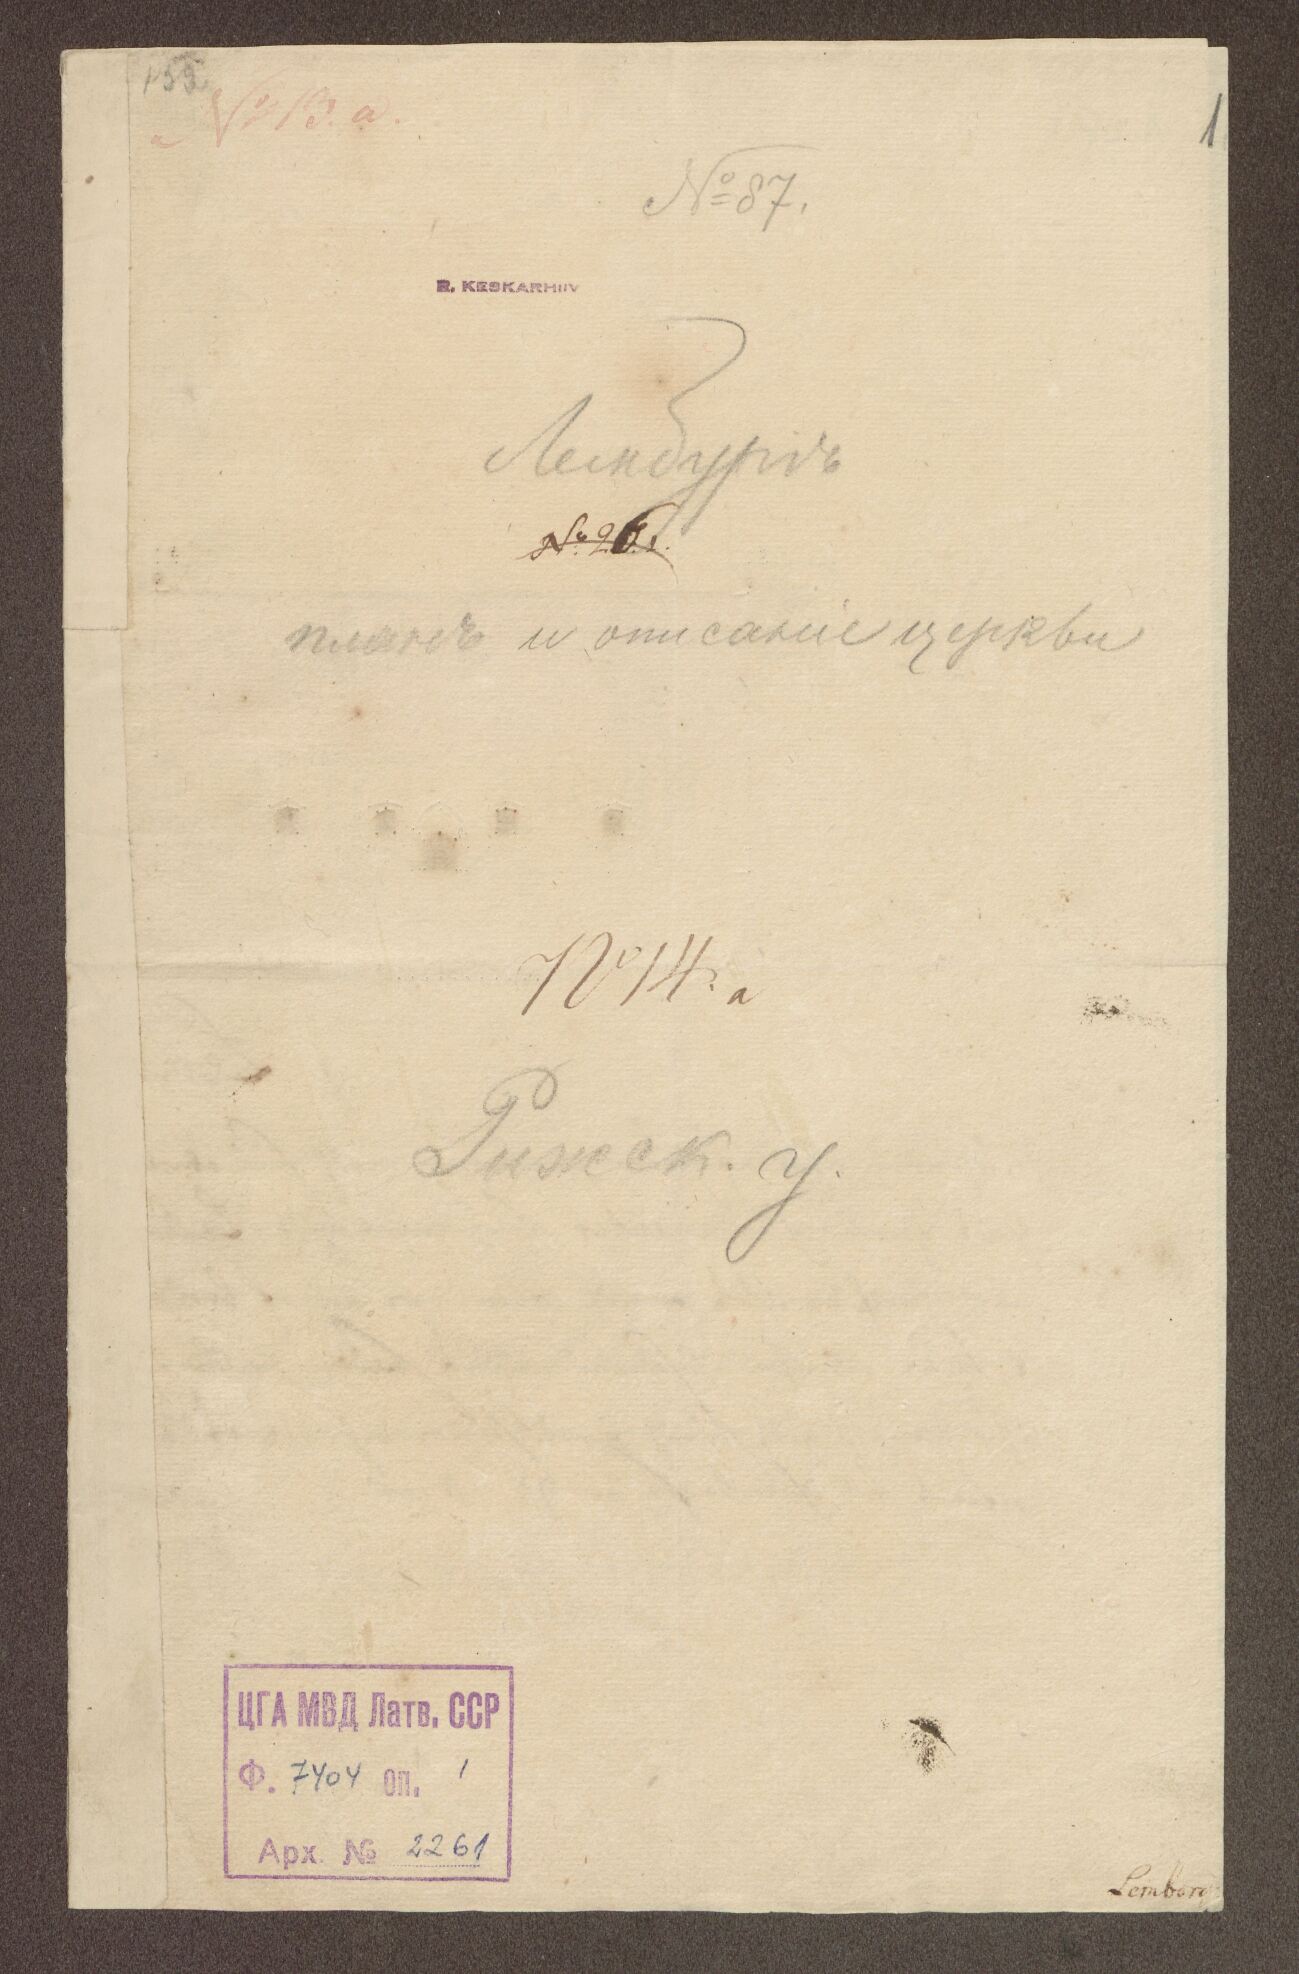 155
№ 13. a.
a
1
№ 87.
R. KESKARHIIV
Лембургъ
№ 26.
планъ и описаніе церкви
№ 14. a
Рижск. у.
ЦГА МВД Латв. ССР
Ф. 7404 оп. 1
Арх. № 2261
Lemburg